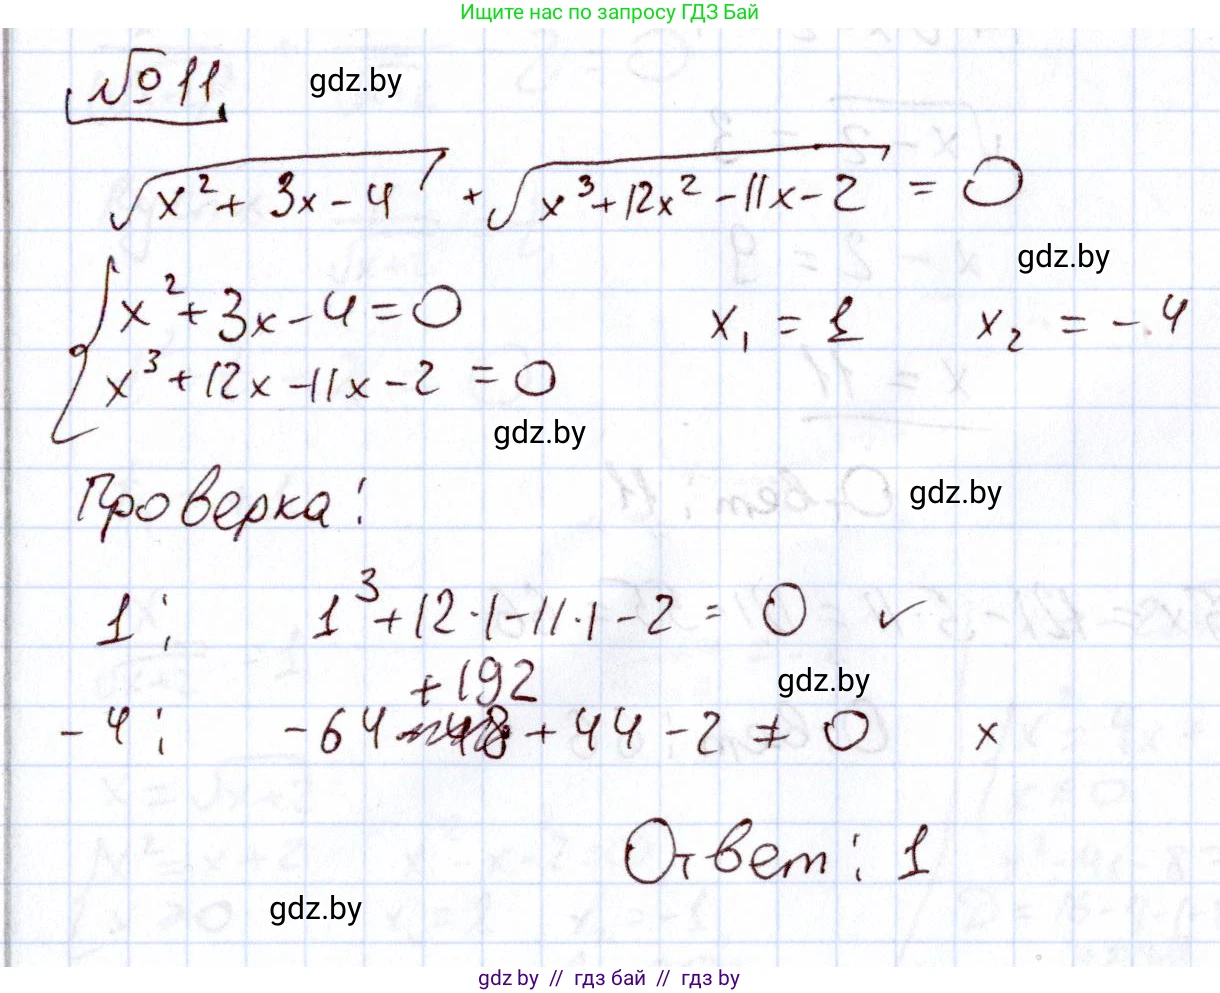 Ищите нас по запросу ГДЗ Бай
№ 11 gdz.by
√(x² + 3x - 4) + √(x³ + 12x² - 11x - 2) = 0
gdz.by
{ x² + 3x - 4 = 0 x₁ = 1 x₂ = -4
x³ + 12x - 11x - 2 = 0
gdz.by
Проверка: gdz.by
1: 1³ + 12·1 - 11·1 - 2 = 0 ✓
+ 192 gdz.by
-4: -64 + 44 - 2 ≠ 0 ×
Ответ: 1
gdz.by
gdz by // гдз бай // гдз by